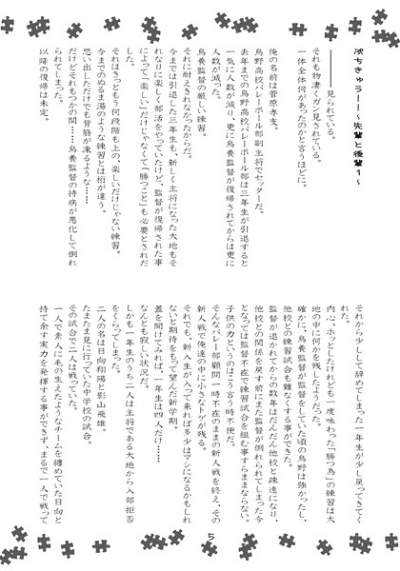 ぷちきゅう！ー～先輩と後輩１～
――――見られている。
それも物凄くガン見されている。
一体全体何があったのかと言うほどに。
俺の名前は菅原孝支。
烏野高校バレーボール部副主将でセッターだ。
去年までの烏野高校バレーボール部は三年生が引退すると
一気に人数が減り、更に烏養監督が復帰されてからは更に
人数が減った。
烏養監督の厳しい練習。
それに耐えきれなかったからだ。
今までは引退した三年生も、新しく主将になった大地もそ
れなりに楽しく部活をやっていたけど、監督が復帰された事
によって「楽しい」だけじゃなくて『勝つこと』も必要とされだ
した。
それはきっともう何段階も上の、楽しいだけじゃない練習。
今までのぬるま湯のような練習とは桁が違う。
思い出しただけでも背筋が凍るような……
だけどそれもつかの間……烏養監督の持病が悪化して倒れ
られてしまった。
以降の復帰は未定。
それから少しして辞めてしまった一年生が少し戻ってきてく
れた。
内心、ホッとしたけれども一度味わった『勝つ烏』の練習は大
地の中に何かを残したようだった。
確かに、烏養監督が監督をしていた頃の烏野は強かったし、
他校との練習試合も難なくする事ができた。
監督が退かれてからの数年はだんだん他校と疎遠になり、
他校との関係を戻す前にまた監督が倒れられてしまった今
となっては監督不在で練習試合を組む事すらままならない。
子供の力というのはこう言う時不便だ。
そんなバレー部顧問一時不在のままの新人戦を終え、その
新人戦で俺達の中に小さなトゲが残る。
それでも、新入生が入って来れば多少はマシになるかもしれ
ないと期待をもって望んだ新学期。
蓋を開けてみれば、一年生は四人だけ……
なんとも寂しい状況だ。
しかも一年生のうち二人は主将である大地から入部拒否
をくらってしまった。
二人の名は日向翔陽と影山飛雄。
たまたま見に行っていた中学校の試合。
その試合で二人は戦っていた。
一人で素人に毛の生えたようなチームを纏めていた日向と
持て余す実力を発揮する事ができず、まるで一人で戦って
5